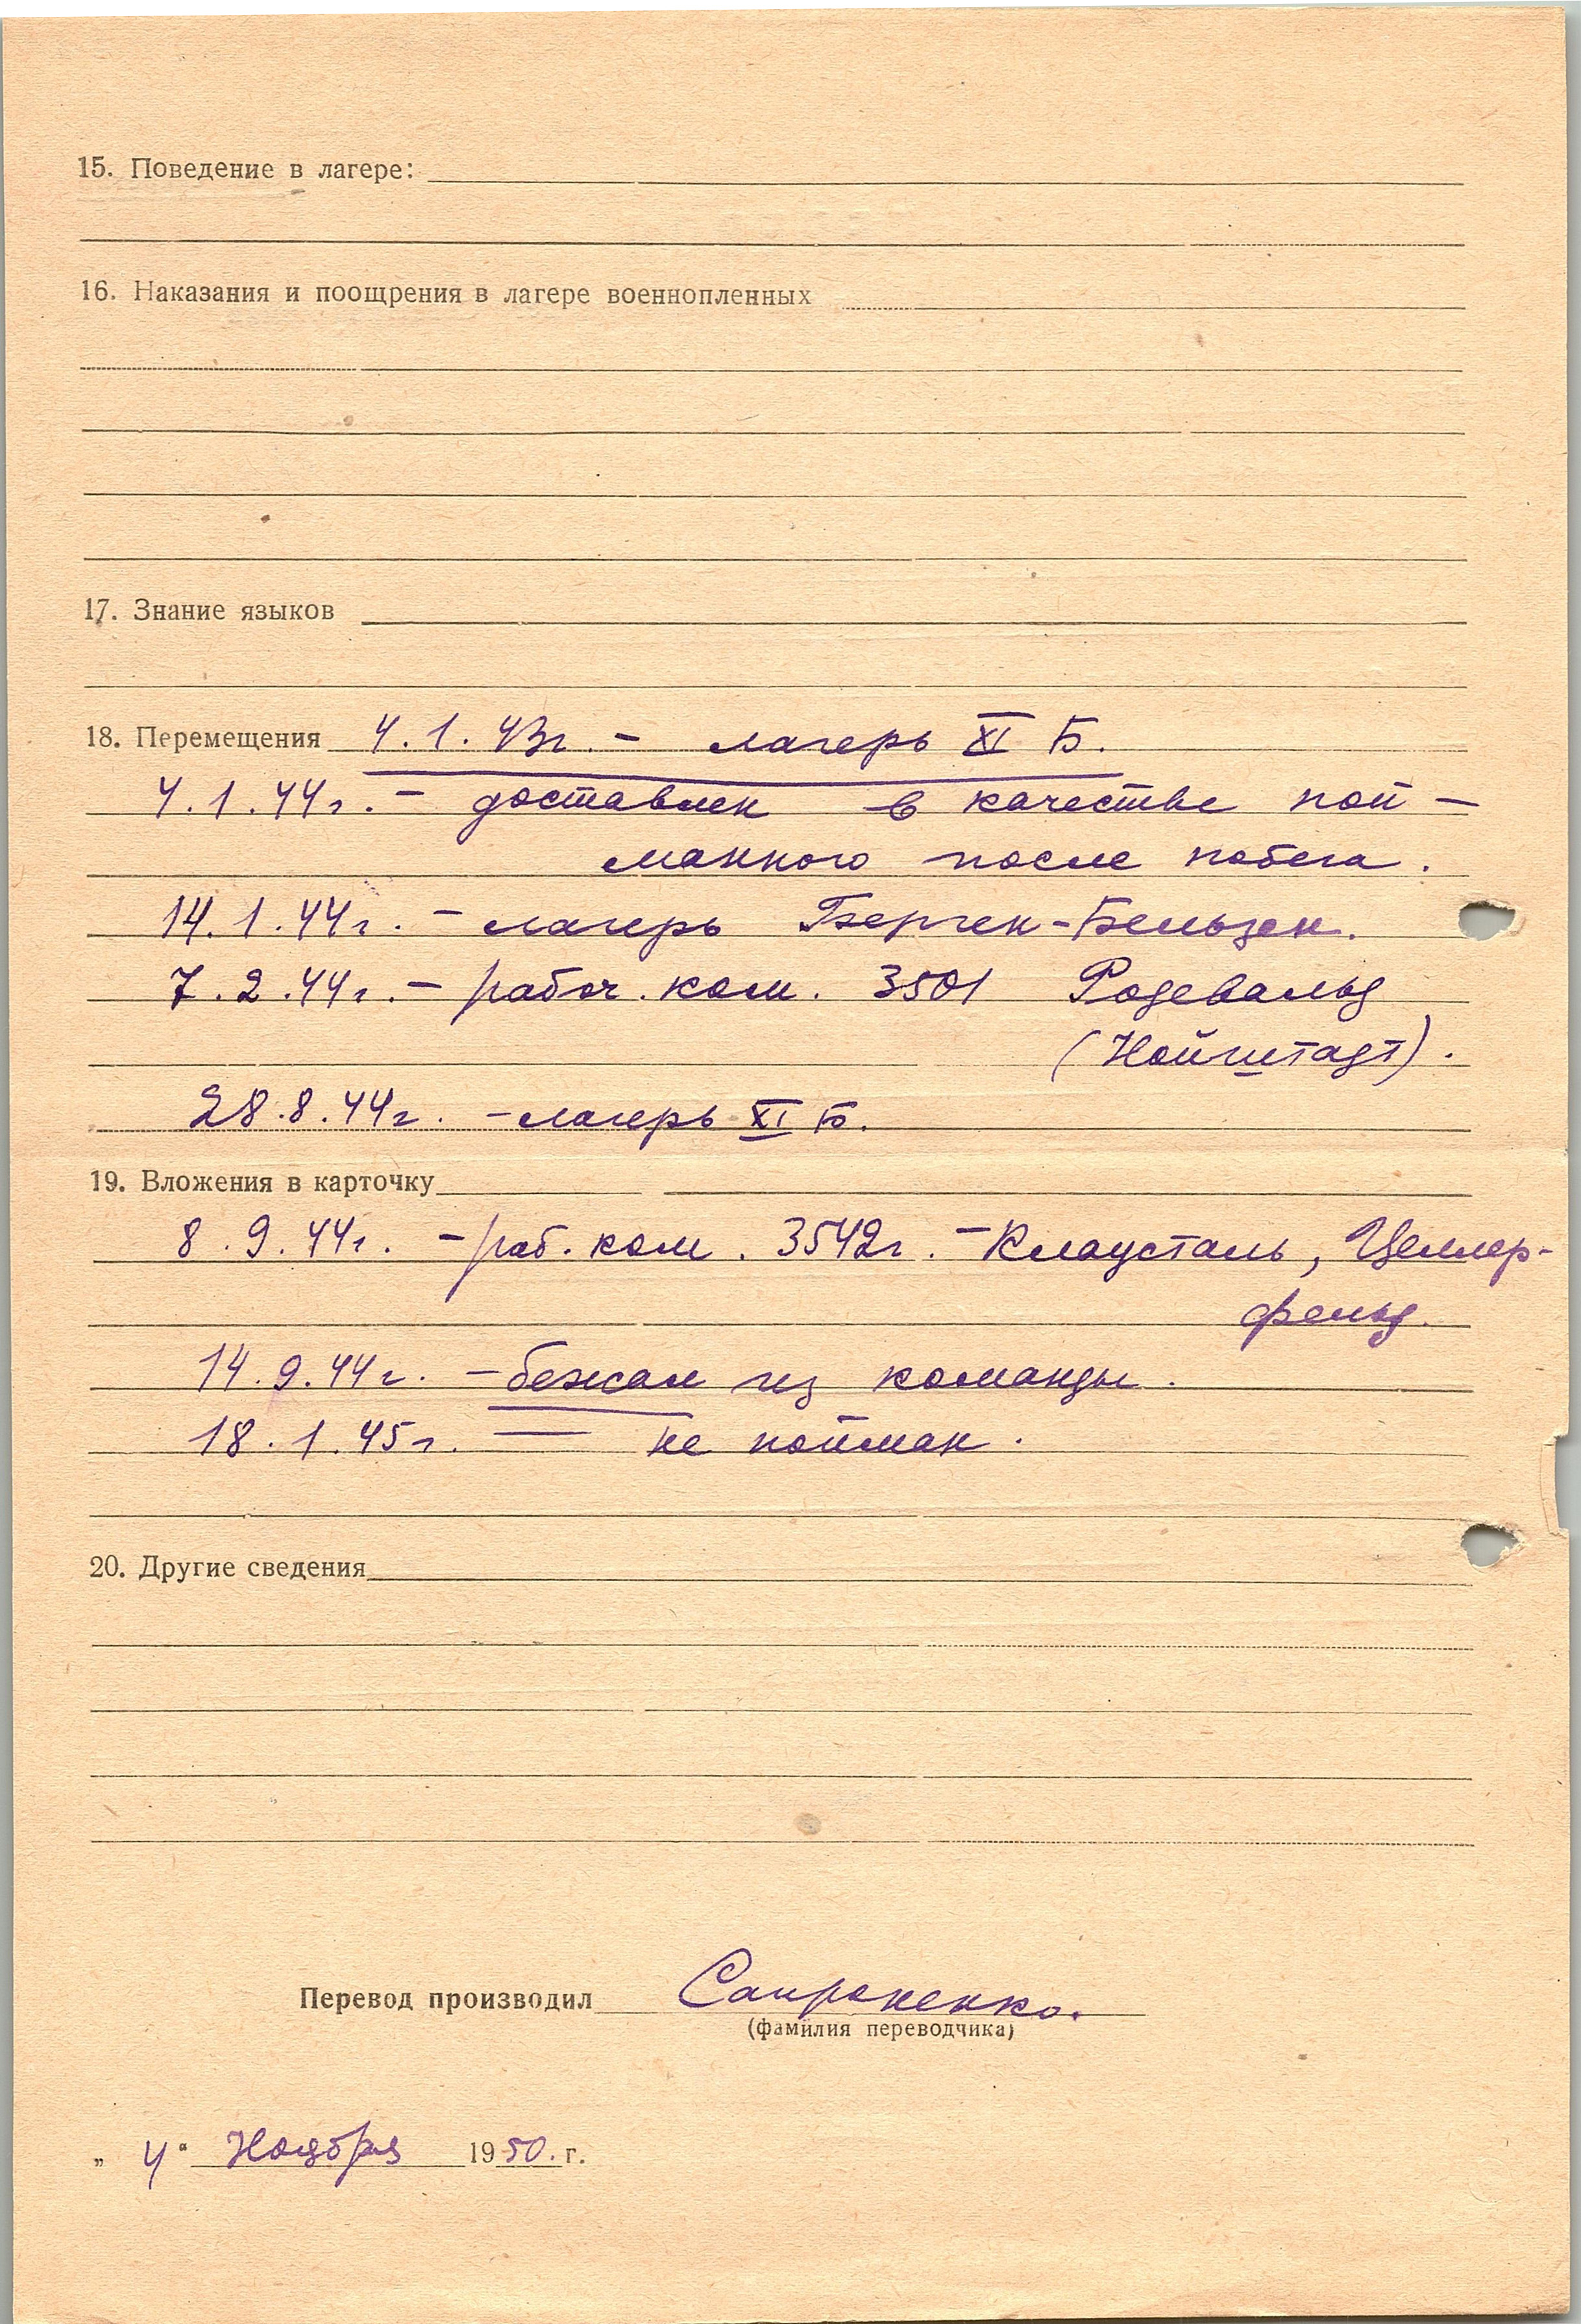 15. Поведение в лагере:
16. Наказания и поощрения в лагере военнопленных
17. Знание языков
18. Перемещения 4.1.43г. – лагерь XI Б.
4.1.44г. – доставлен в качестве пой–
манного после побега.
14.1.44г. – лагерь Берген-Бельзен.
7.2.44г. – рабоч. ком. 3501 Родевальд
(Нойштадт).
28.8.44г. – лагерь XI Б.
19. Вложения в карточку
8.9.44г. – раб. ком. 3542г. – Клаусталь, Целлер-
фельд.
14.9.44г. – бежал из команды.
18.1.45г. — не пойман.
20. Другие сведения
Перевод производил Сапроненко.
(фамилия переводчика)
„ 4 “ Ноября 1950. г.